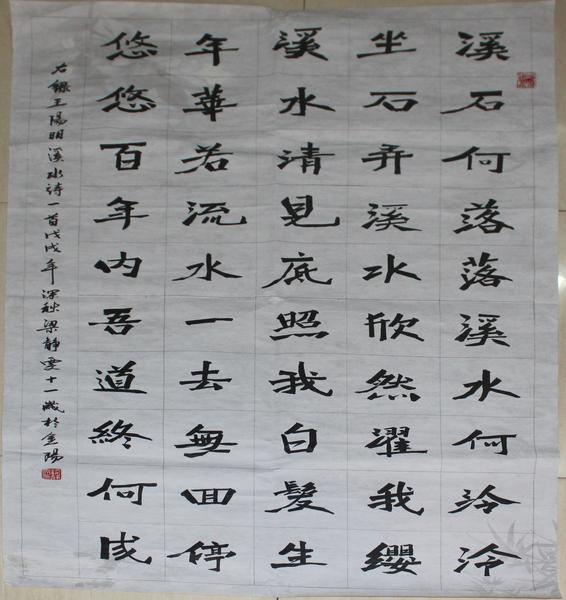 溪石何落落溪水何泠泠
坐石弄溪水欣然濯我纓
溪水清見底照我白髮生
年華若流水一去無回停
悠悠百年內吾道終何成
右錄王陽明溪水詩一首戊戌年深秋梁靜雯十一歲於金陽